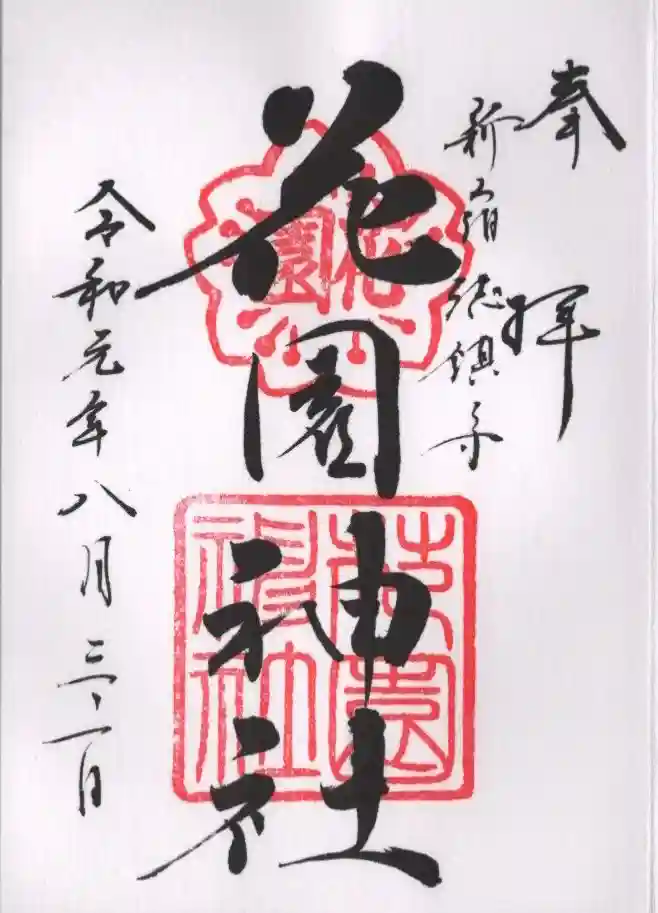 奉拝
新宿総鎮守
花園神社
令和元年八月三十一日
花園
花園神社